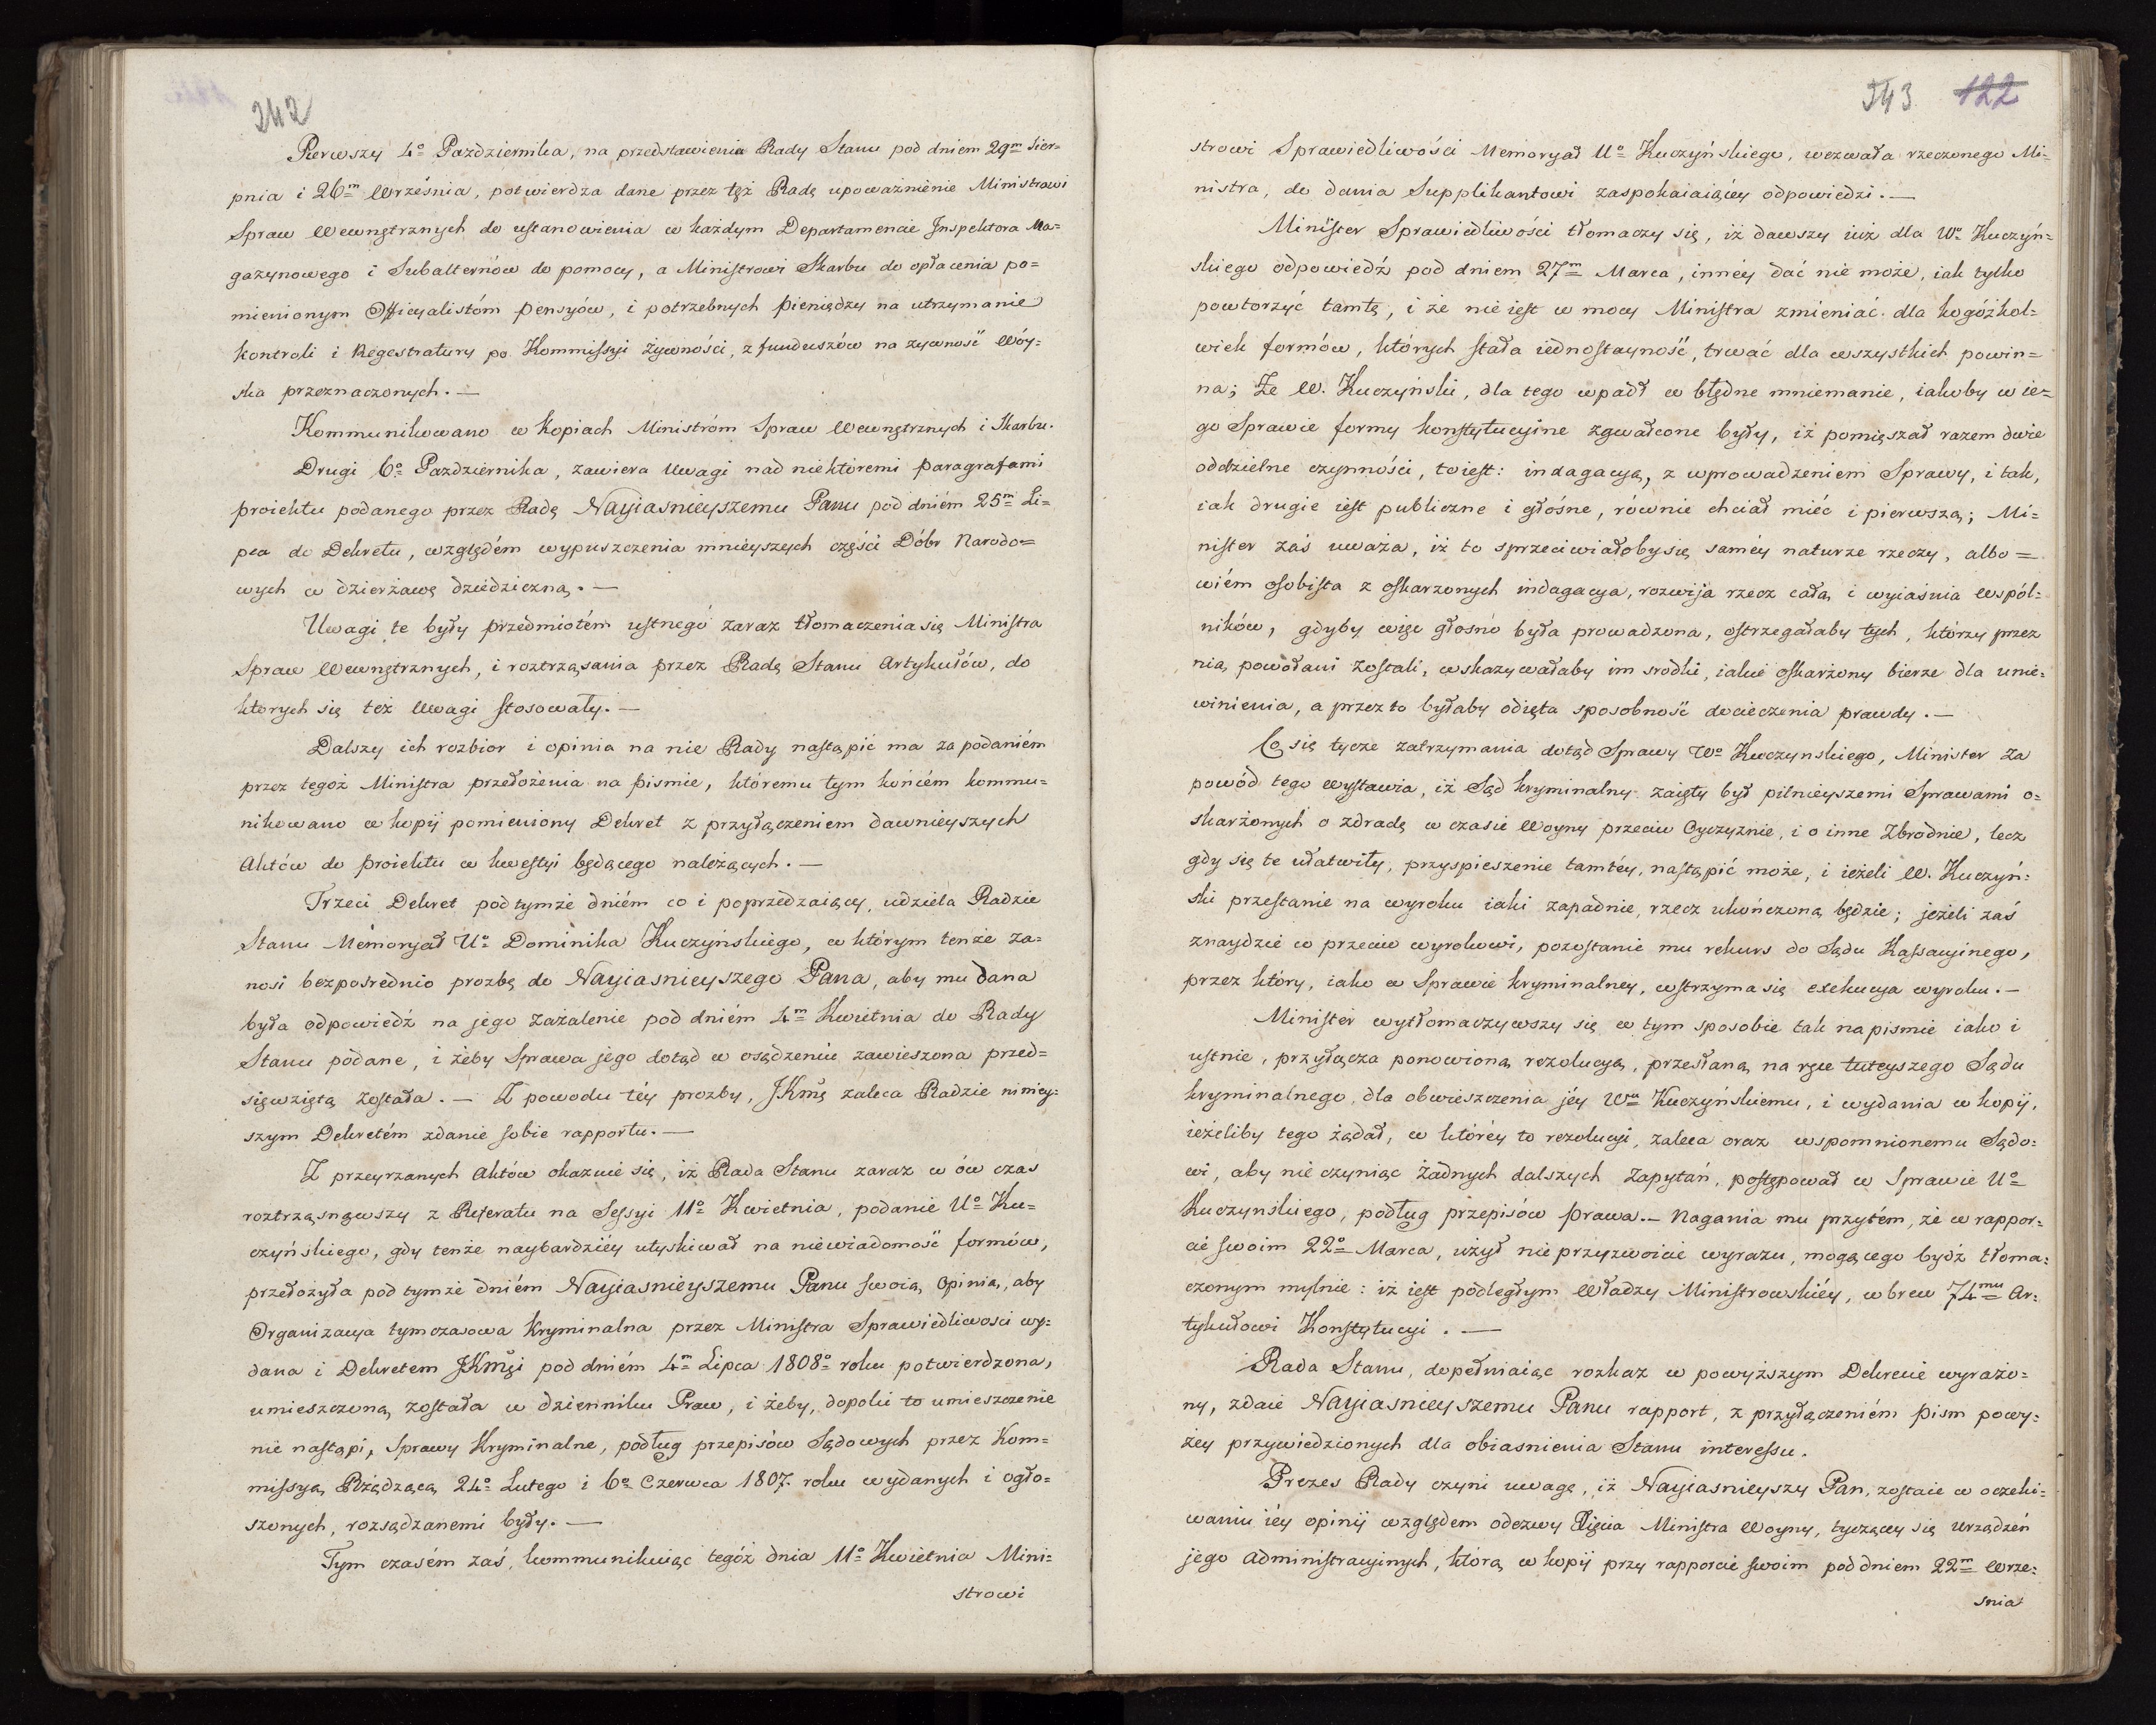 242
Pierwszy 4º Pazdziernika, na przedstawienia Rady Stanu pod dniem 29m Sier-
pnia i 26m Września, potwierdza dane przez tęż Radę upoważnienie Ministrowi
Spraw Wewnętrznych do ustanowienia w każdym Departamencie Inspektora Ma=
gazynowego i Subalternów do pomocy, a Ministrowi Skarbu do opłacenia po=
mienionym Officyalistóm pensyów, i potrzebnych pieniędzy na utrzymanie
kontroli i Regestratury po Kommissyi Żywności, z funduszów na zywność Wóy=
ska przeznaczonych. —
Kommunikowano w Kopiach Ministróm Spraw Wewnętrznych i Skarbu.
Drugi 6º Pazdziernika, zawiera Uwagi nad niektóremi paragrafami
proiektu podanego przez Radę Nayiasnieyszemu Panu pod dniém 25m Li=
pca do Dekretu, względém wypuszczenia mnieyszych części Dóbr Narodo=
wych w dzierżawę dziedziczną. —
Uwagi te były przedmiotém ustnego zaraz tłomaczenia się Ministra
Spraw Wewnętrznych, i roztrząsania przez Radę Stanu Artykułów, do
ktorych się też Uwagi stosowały. —
Dalszy ich rozbior i opinia na nie Rady nastąpić ma za podaniém
przez tegoż Ministra przełożenia na pismie, któremu tym końcém kommu=
nikowano w kopij pomieniony Dekret z przyłączeniem dawnieyszych
Aktów do proiektu w kwestyi będącego należących. —
Trzeci Dekret pod tymże dniém co i poprzedzaiący, udziela Radzie
Stanu Memoryał Uº Dominika Kuczyńskiego, w którym tenże za=
nosi bezpośrednio prozbę do Nayiasnieyszego Pana, aby mu dana
była odpowiedź na jego zażalenie pod dniém 4m Kwietnia do Rady
Stanu podane, i żeby Sprawa jego dotąd w osądzeniu zawieszona przed=
sięwziętą została. — Z powodu téy prozby, JKmć zaleca Radzie niniey=
szym Dekretém zdanie sobie rapportu. —
Z przeyrzanych Aktów okazuie się, iż Rada Stanu zaraz w ów czas
roztrząsnąwszy z Referatu na Sessyi 11º Kwietnia, podanie Uº Ku=
czyńskiego, gdy tenże naybardziéy utyskiwał na niewiadomość formów,
przełożyła pod tymże dniém Nayiasnieyszemu Panu swoią Opinią, aby
Organizacya tymczasowa Kryminalna przez Ministra Sprawiedliwosci wy=
dana i Dekretem JKmści pod dniém 4m Lipca 1808º roku potwierdzona,
umieszczoną została w dzienniku Praw, i żeby, dopoki to umieszczenie
nie nastąpi, Sprawy Kryminalne, podług przepisów Sądowych przez Kom=
missyą Rządzącą 24º Lutego i 6º Czerwca 1807. roku wydanych i ogło=
szonych, rozsądzanemi były. —
Tym czasém zaś, kommunikuiąc tegóż dnia 11º Kwietnia Mini=
strowi
343 122
strowi Sprawiedliwości Memoryał Uº Kuczyńskiego, wezwała rzeczonego Mi=
nistra, do dania Supplikantowi zaspokaiaiącéy odpowiedzi. —
Minister Sprawiedliwości tłomaczy się, iż dawszy iuż dla Wº Kuczyń=
skiego odpowiedź pod dniem 27m Marca, innéy dać nie może, iak tylko
powtorzyć tamtę, i że nie iest w mocy Ministra zmieniać dla kogóżkol=
wiek formów, których stała iednostayność, trwać dla wszystkich powin=
na; Że W. Kuczyński, dla tego wpadł w błędne mniemanie, iakoby w ie=
go Sprawie formy konstytucyine zgwałcone były, iż pomięszał razem dwie
oddzielne czynności, toiest: indagacyą, z wprowadzeniem Sprawy, i tak,
iak drugie iest publiczne i głośne, równie chciał mieć i pierwszą; Mi=
nister zaś uważa, iż to sprzeciwiałobysię saméy naturze rzeczy, albo=
wiém osobista z oskarzonych indagacya, rozwija rzecz całą i wyiasnia wspól=
ników, gdyby więc głosno była prowadzona, ostrzegałaby tych, którzy przez
nią powołani zostali, wskazywałaby im srodki, iakie oskarżony bierze dla unie=
winienia, a przez to byłaby odięta sposobność docieczenia prawdy. —
Co się tycze zatrzymania dotąd Sprawy Wº Kuczynskiego, Minister za
powód tego wystawia, iż Sąd kryminalny zaięty był pilnieyszemi Sprawami o=
skarżonych o zdradę w czasie Woyny przeciw Oyczyznie, i o inne Zbrodnie, lecz
gdy się te ułatwiły, przyspieszenie tamtéy, nastąpić może, i ieżeli W. Kuczyń=
ski przestanie na wyroku iaki zapadnie, rzecz ukończoną będzie; jeżeli zaś
znaydzie co przeciw wyrokowi, pozostanie mu rekurs do Sądu Kassacyinego,
przez który, iako w Sprawie kryminalney, wstrzyma się exekucya wyroku. —
Minister wytłomaczywszy się w tym sposobie tak na pismie iako i
ustnie, przyłącza ponowioną rezolucyą, przesłaną na ręce tuteyszego Sądu
kryminalnego, dla obwieszczenia jéy Wu Kuczyńskiemu, i wydania w kopij,
ieżeliby tego żądał, w któréy to rezolucyi, zaleca oraz wspomnionemu Sądo=
wi, aby nie czyniąc żadnych dalszych Zapytań, postępował w Sprawie Uº
Kuczynskiego, podług przepisów prawa. — Nagania mu przytém, że w rappor=
cie swoim 22º Marca, użył nie przyzwoicie wyrazu, mogącego bydź tłoma=
czonym mylnie: iż iest podległym Władzy Ministrowskiéy, wbrew 74mu Ar=
tykułowi Konstytucyi. —
Rada Stanu, dopełniaiąc rozkaz w powyższym Dekrecie wyrażo=
ny, zdaie Nayiasnieyszemu Panu rapport, z przyłączeniém pism powy=
żey przywiedzionych dla obiasnienia Stanu interessu.
Prezes Rady czyni uwagę, iż Nayiasnieyszy Pan, zostaie w oczeki=
waniu iéy opinij względem odezwy Xięcia Ministra Woyny, tyczącey się urządzeń
jego Administracyinych, którą w kopij przy rapporcie swoim pod dniem 22m Wrze=
snia